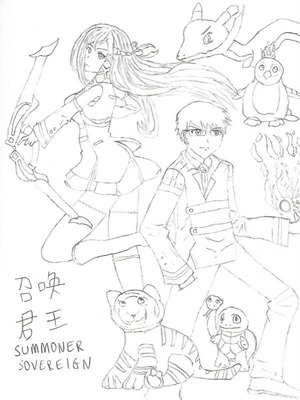 召唤
君王
SUMMONER
SOVEREIGN